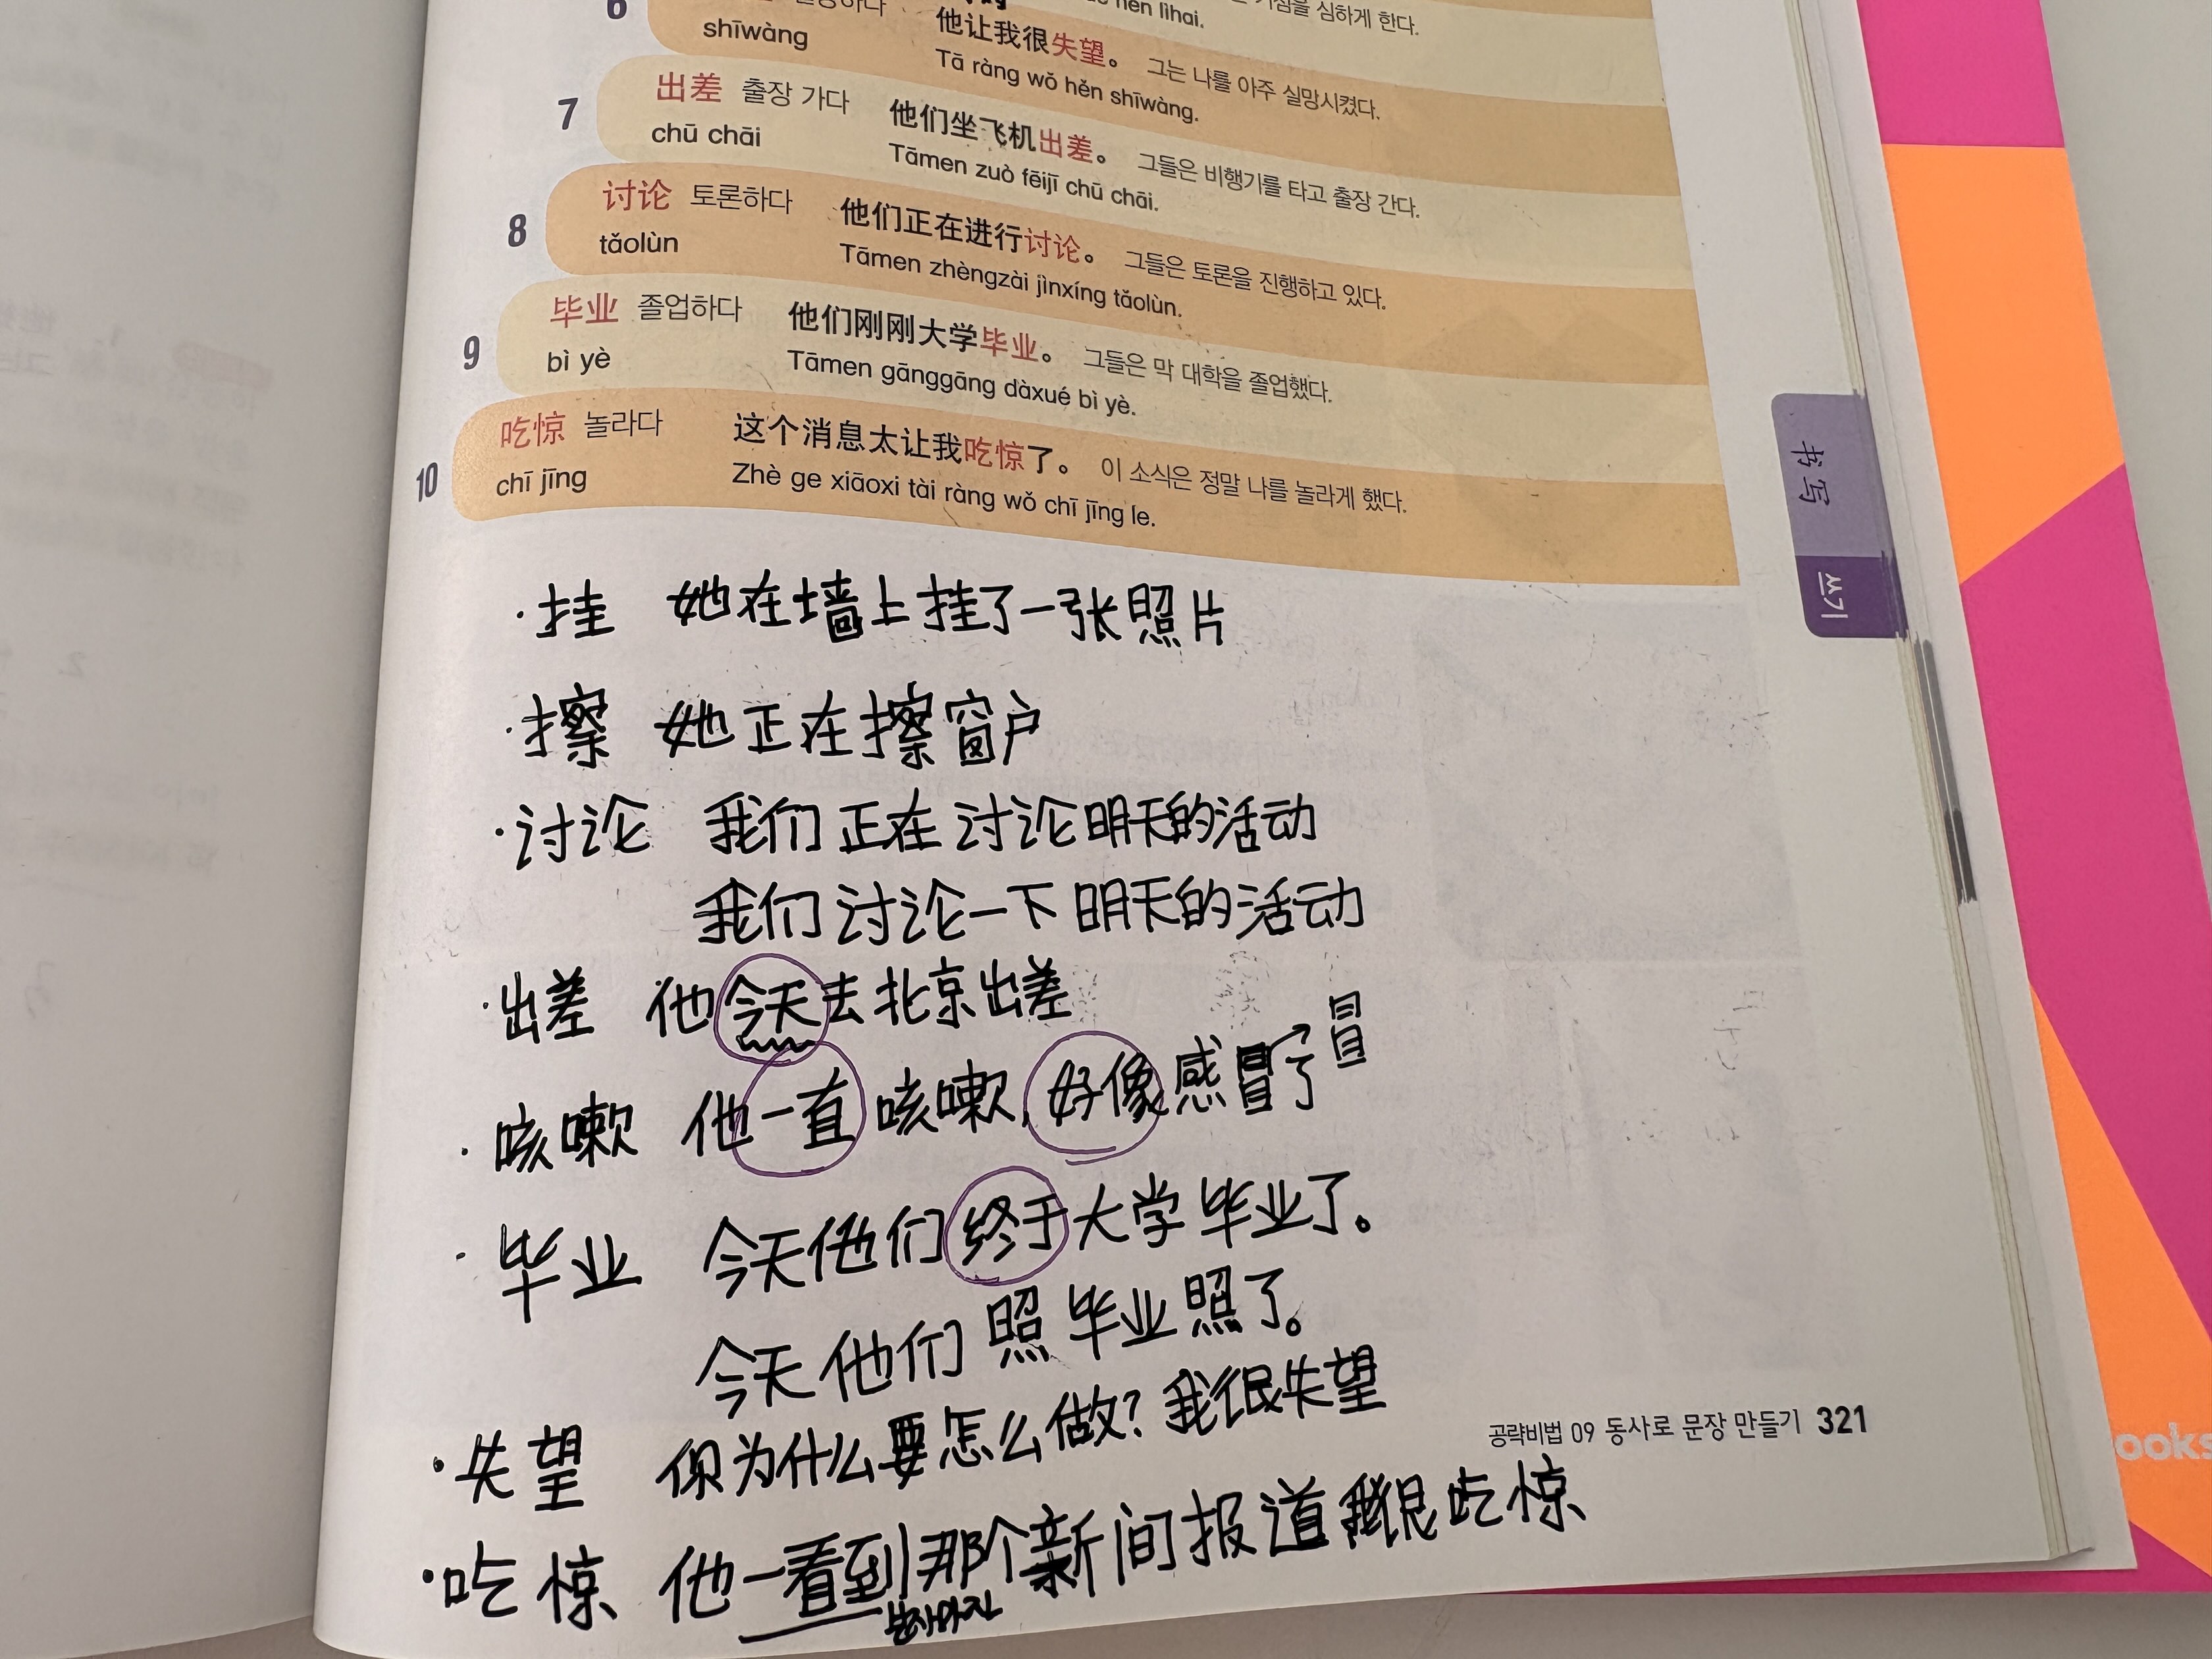 6
shīwàng
他让我很失望。 그는 나를 아주 실망시켰다.
Tā ràng wǒ hěn shīwàng.
7 出差 출장 가다 他们坐飞机出差。 그들은 비행기를 타고 출장 간다.
chū chāi Tāmen zuò fēijī chū chāi.
8 讨论 토론하다 他们正在进行讨论。 그들은 토론을 진행하고 있다.
tǎolùn Tāmen zhèngzài jìnxíng tǎolùn.
9 毕业 졸업하다 他们刚刚大学毕业。 그들은 막 대학을 졸업했다.
bì yè Tāmen gānggāng dàxué bì yè.
10 吃惊 놀라다 这个消息太让我吃惊了。 이 소식은 정말 나를 놀라게 했다.
chī jīng Zhè ge xiāoxi tài ràng wǒ chī jīng le.
书写
쓰기
·挂 她在墙上挂了一张照片
·擦 她正在擦窗户
·讨论 我们正在讨论明天的活动
我们讨论一下明天的活动
·出差 他今天去北京出差
·咳嗽 他一直咳嗽,好像感冒了→冒
·毕业 今天他们终于大学毕业了。
今天他们照毕业照了。
·失望 你为什么要怎么做?我很失望
·吃惊 他一看到那个新间报道我很吃惊
보자마자
공략비법 09 동사로 문장 만들기 321
ooks